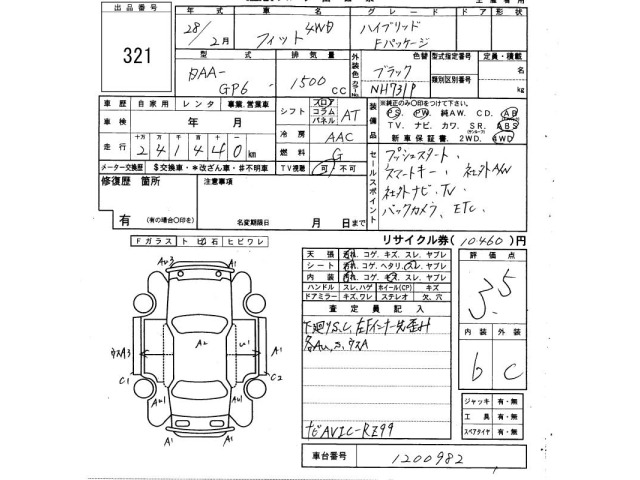 出品番号
321
年式
車名
グレード
ドア
形状
28/2月
フィット 4WD
ハイブリッド
Fパッケージ
型式
排気量
外装色
色替
型式指定番号
定員・積載
DAA-
GP6
1500
cc
ブラック
カラーNo.
NH731P
類別区分番号
kg
車歴
自家用
レンタ
事業、営業車
シフト
フロア
コラム
パネル
AT
装備品
※純正のみ○印をつけて下さい。
PS. PW. 純AW. CD. AB
TV. ナビ. カワ. SR. ABS
新車保証書. 2WD. 4WD
車検
年 月
冷房
AAC
走行
十万
万
千
百
十
一
2 4 1 4 4 0 km
燃料
G
メーター交換歴
$交換車・*改ざん車・#不明車
TV視聴
可
不可
セールスポイント
プッシュスタート、
スマートキー、 社外AW
社外ナビ、TV、
バックカメラ、ETC、
修復歴 箇所
注意事項
有
(有の場合〇印を)
名変期限日 月 日まで
リサイクル券( 10460 )円
Fガラス
トビ石
ヒビワレ
天張
汚れ、コゲ、キズ、スレ、ヤブレ
シート
汚れ、コゲ、ヘタリ、スレ、ヤブレ
内装
汚れ、コゲ、キズ、スレ、ヤブレ
ハンドル
スレ、ハゲ
ホイール(CP)
キズ
ドアミラー
キズ、ワレ
ステレオ
欠、穴
評価点
3.5
内装
外装
b
C
査定員記入
下廻りS.C、左Fインナー先歪み
各AU.S.ウスA
ナビAVIC-RZ99
AU3
A1
A2
ウスA3
U1
A1
C1
C2
AU1
AU1
A1
A1
ジャッキ
有・無
工具
有・無
スペアタイヤ
有・無
車台番号
1200982